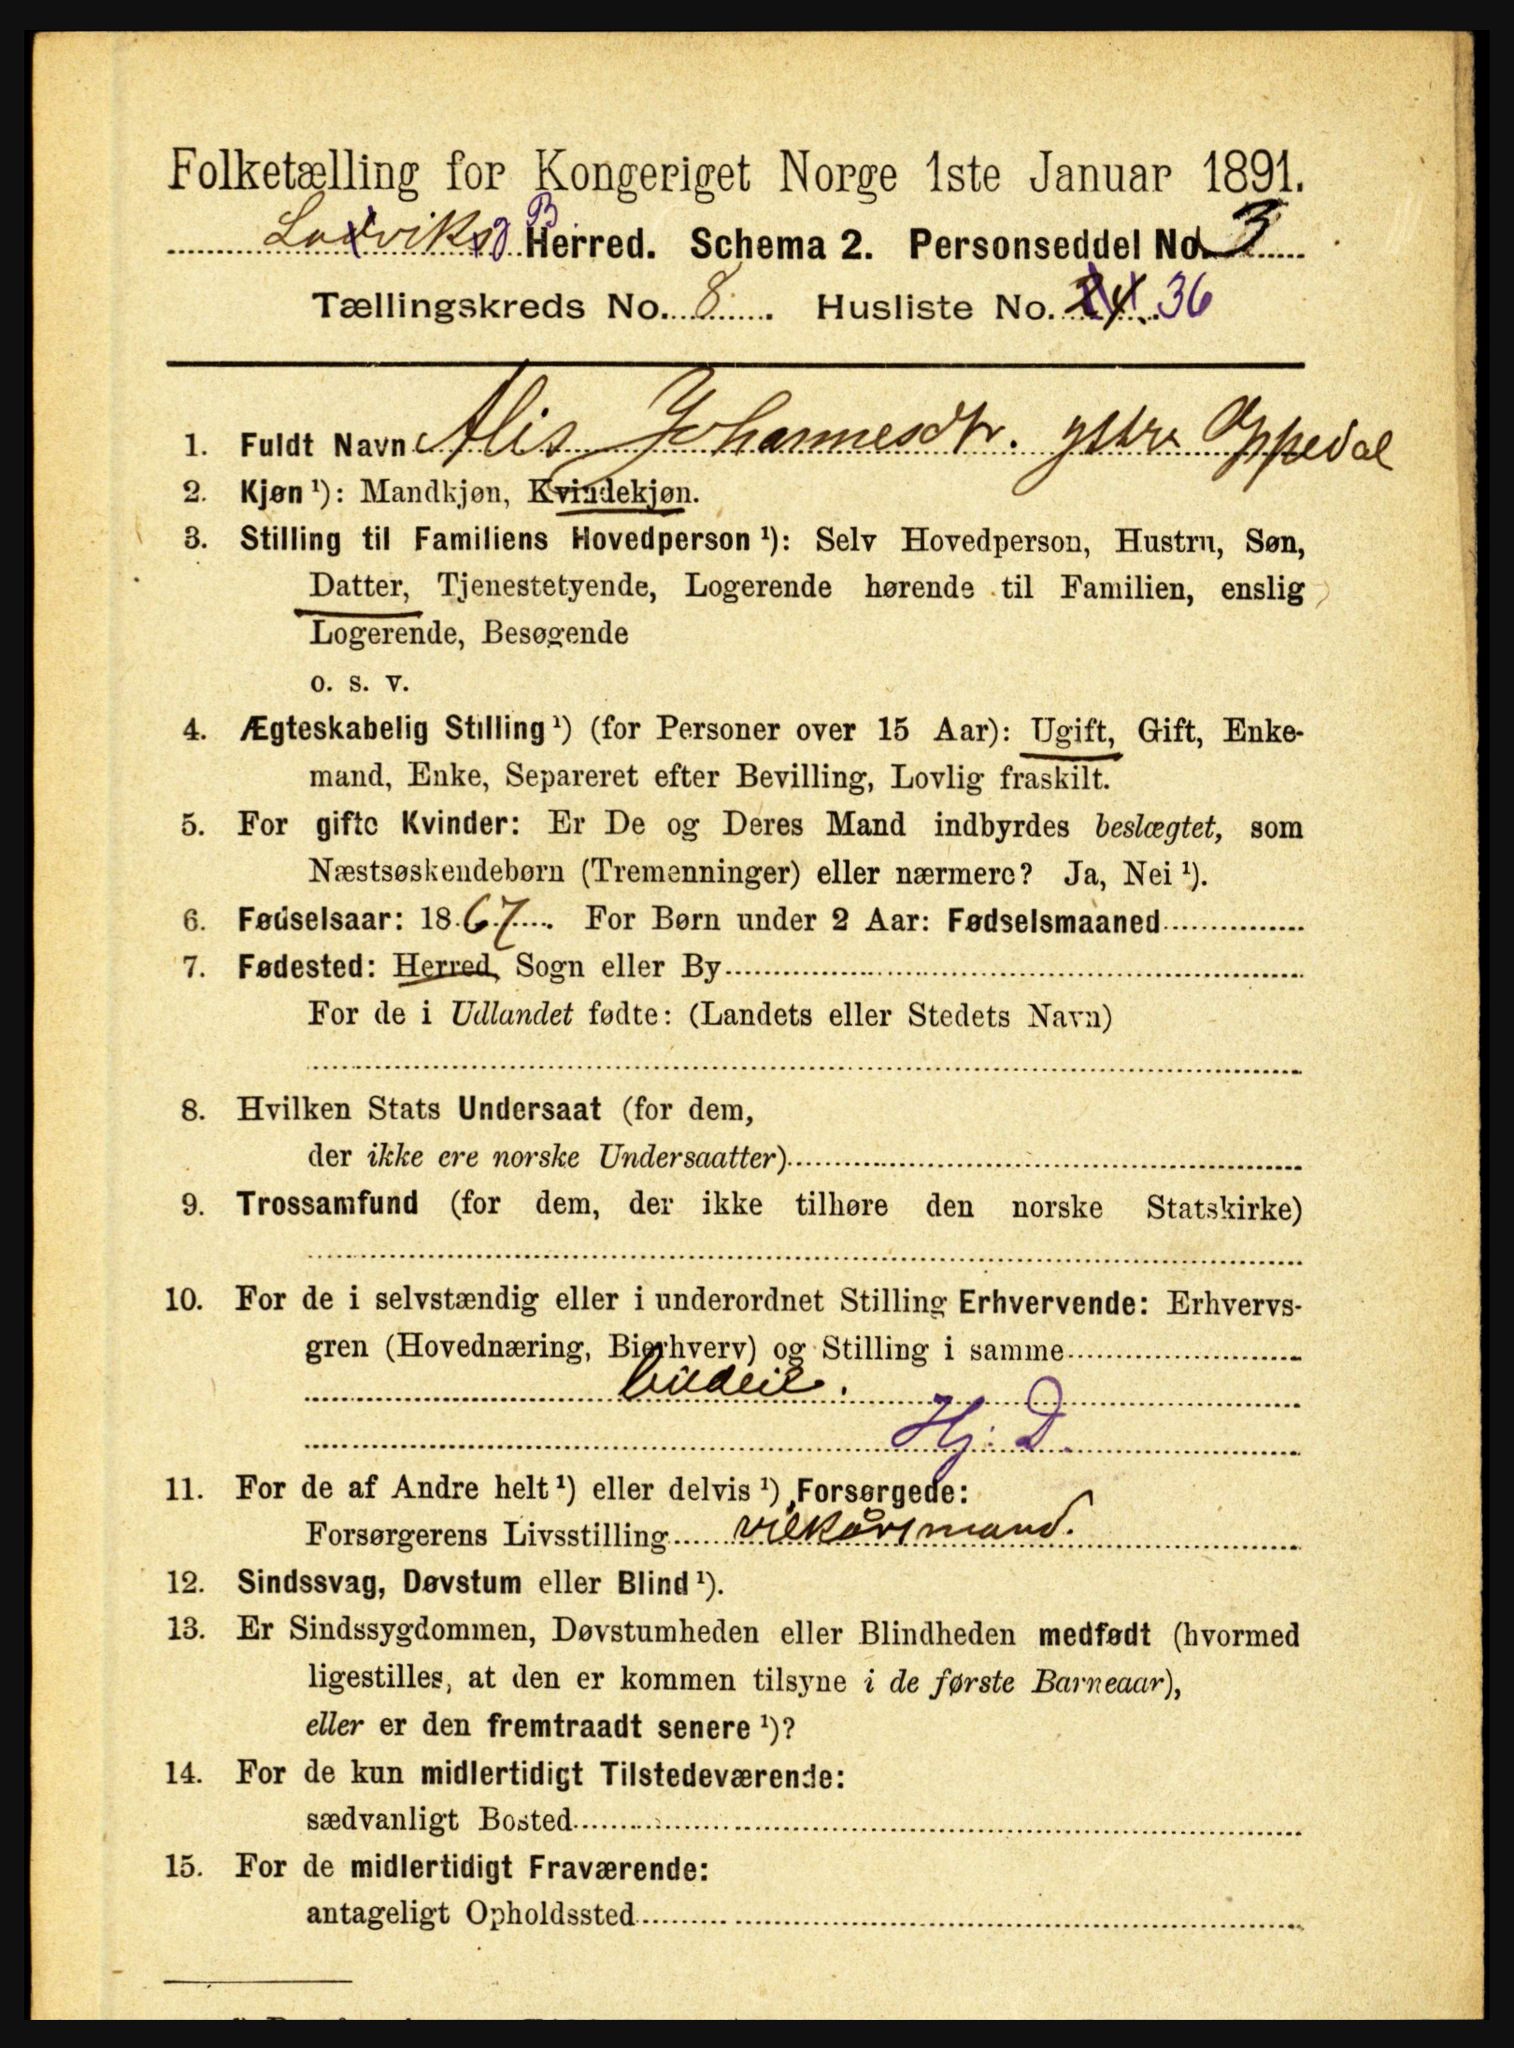 Folketælling for Kongeriget Norge 1ste Januar 1891.
Ladviks B Herred. Schema 2. Personseddel No. 3
Tællingskreds No. 8. Husliste No. 24. 36
1. Fuldt Navn Alis Johannesdtr. ystre Oppedal
2. Kjøn ¹): Mandkjøn, Kvindekjøn.
3. Stilling til Familiens Hovedperson ¹): Selv Hovedperson, Hustru, Søn,
Datter, Tjenestetyende, Logerende hørende til Familien, enslig
Logerende, Besøgende
o. s. v.
4. Ægteskabelig Stilling ¹) (for Personer over 15 Aar): Ugift, Gift, Enke-
mand, Enke, Separeret efter Bevilling, Lovlig fraskilt.
5. For gifte Kvinder: Er De og Deres Mand indbyrdes beslægtet, som
Næstsøskendebørn (Tremenninger) eller nærmere? Ja, Nei ¹).
6. Fødselsaar: 1867. For Børn under 2 Aar: Fødselsmaaned
7. Fødested: Herred, Sogn eller By
For de i Udlandet fødte: (Landets eller Stedets Navn)
8. Hvilken Stats Undersaat (for dem,
der ikke ere norske Undersaatter)
9. Trossamfund (for dem, der ikke tilhøre den norske Statskirke)
10. For de i selvstændig eller i underordnet Stilling Erhvervende: Erhvervs-
gren (Hovednæring, Bierhverv) og Stilling i samme
budeie.
Hj. D.
11. For de af Andre helt ¹) eller delvis ¹) Forsørgede:
Forsørgerens Livsstilling vilkårsmand.
12. Sindssvag, Døvstum eller Blind ¹).
13. Er Sindssygdommen, Døvstumheden eller Blindheden medfødt (hvormed
ligestilles, at den er kommen tilsyne i de første Barneaar),
eller er den fremtraadt senere ¹)?
14. For de kun midlertidigt Tilstedeværende:
sædvanligt Bosted
15. For de midlertidigt Fraværende:
antageligt Opholdssted